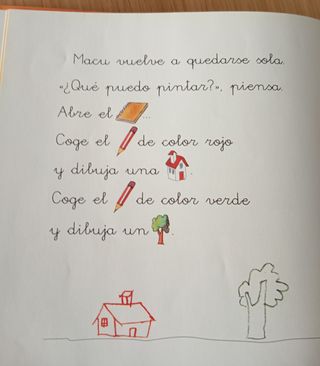 Macu vuelve a quedarse sola.
«¿Qué puedo pintar?», piensa.
Abre el ...
Coge el de color rojo
y dibuja una .
Coge el de color verde
y dibuja un .